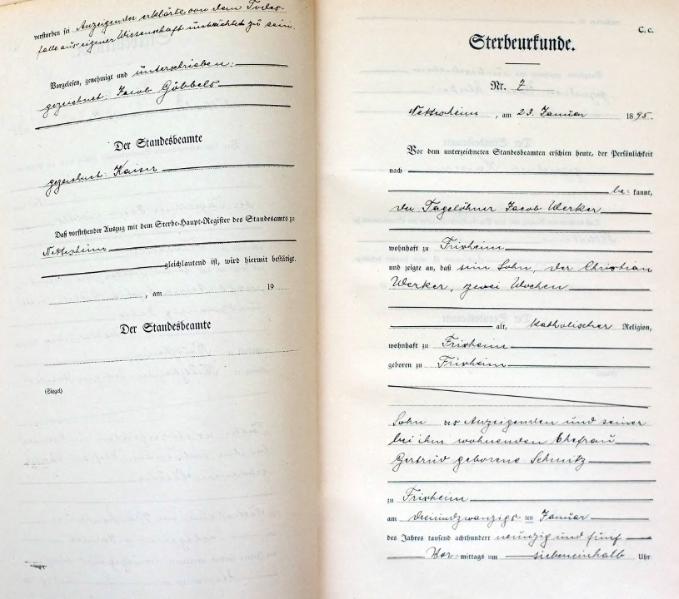 verstorben sei Anzeigender erklärte von dem Todes-
falle aus eigener Wissenschaft unterrichtet zu sein.
Vorgelesen, genehmigt und unterschrieben:
gezeichnet: Jacob Göbbels
Der Standesbeamte
gezeichnet: Kaiser
Daß vorstehender Auszug mit dem Sterbe-Haupt-Register des Standesamts zu
Nettersheim
gleichlautend ist, wird hiermit bestätigt.
, am 19
Der Standesbeamte
(Siegel)
C. c.
Sterbeurkunde.
Nr. 7
, am 23. Januar 1895.
Vor dem unterzeichneten Standesbeamten erschien heute, der Persönlichkeit
nach
be: kannt,
der Tagelöhner Jacob Werker
wohnhaft zu Frixheim
und zeigte an, daß sein Sohn, der Christian
Werker, zwei Wochen
alt, katholischer Religion,
wohnhaft zu Frixheim
geboren zu Frixheim
Sohn des Anzeigenden und seiner
bei ihm wohnenden Ehefrau
Gertrud geborene Schmitz
zu Frixheim
am dreiundzwanzigsten Januar
des Jahres tausend achthundert neunzig und fünf
Vor mittags um siebeneinhalb Uhr